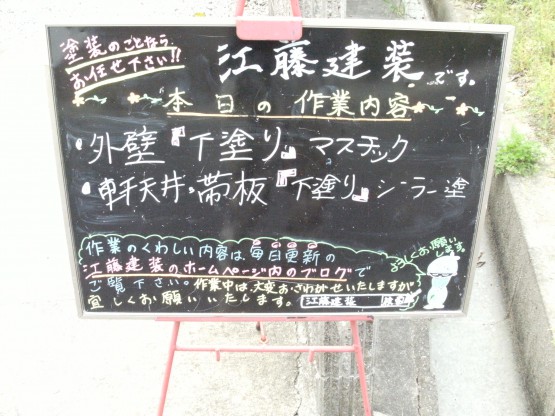 塗装のことなら
お任せ下さい!!
江藤建装です。
本日の作業内容
・外壁『下塗り』マスチック
・軒天井・帯板『下塗り』シーラー塗
作業のくわしい内容は毎日更新の
江藤建装のホームページ内のブログで
ご覧下さい。作業中は大変おさわがせいたしますが
宜しくお願いいたします。
江藤建装
検索
よろしくお願い
します。